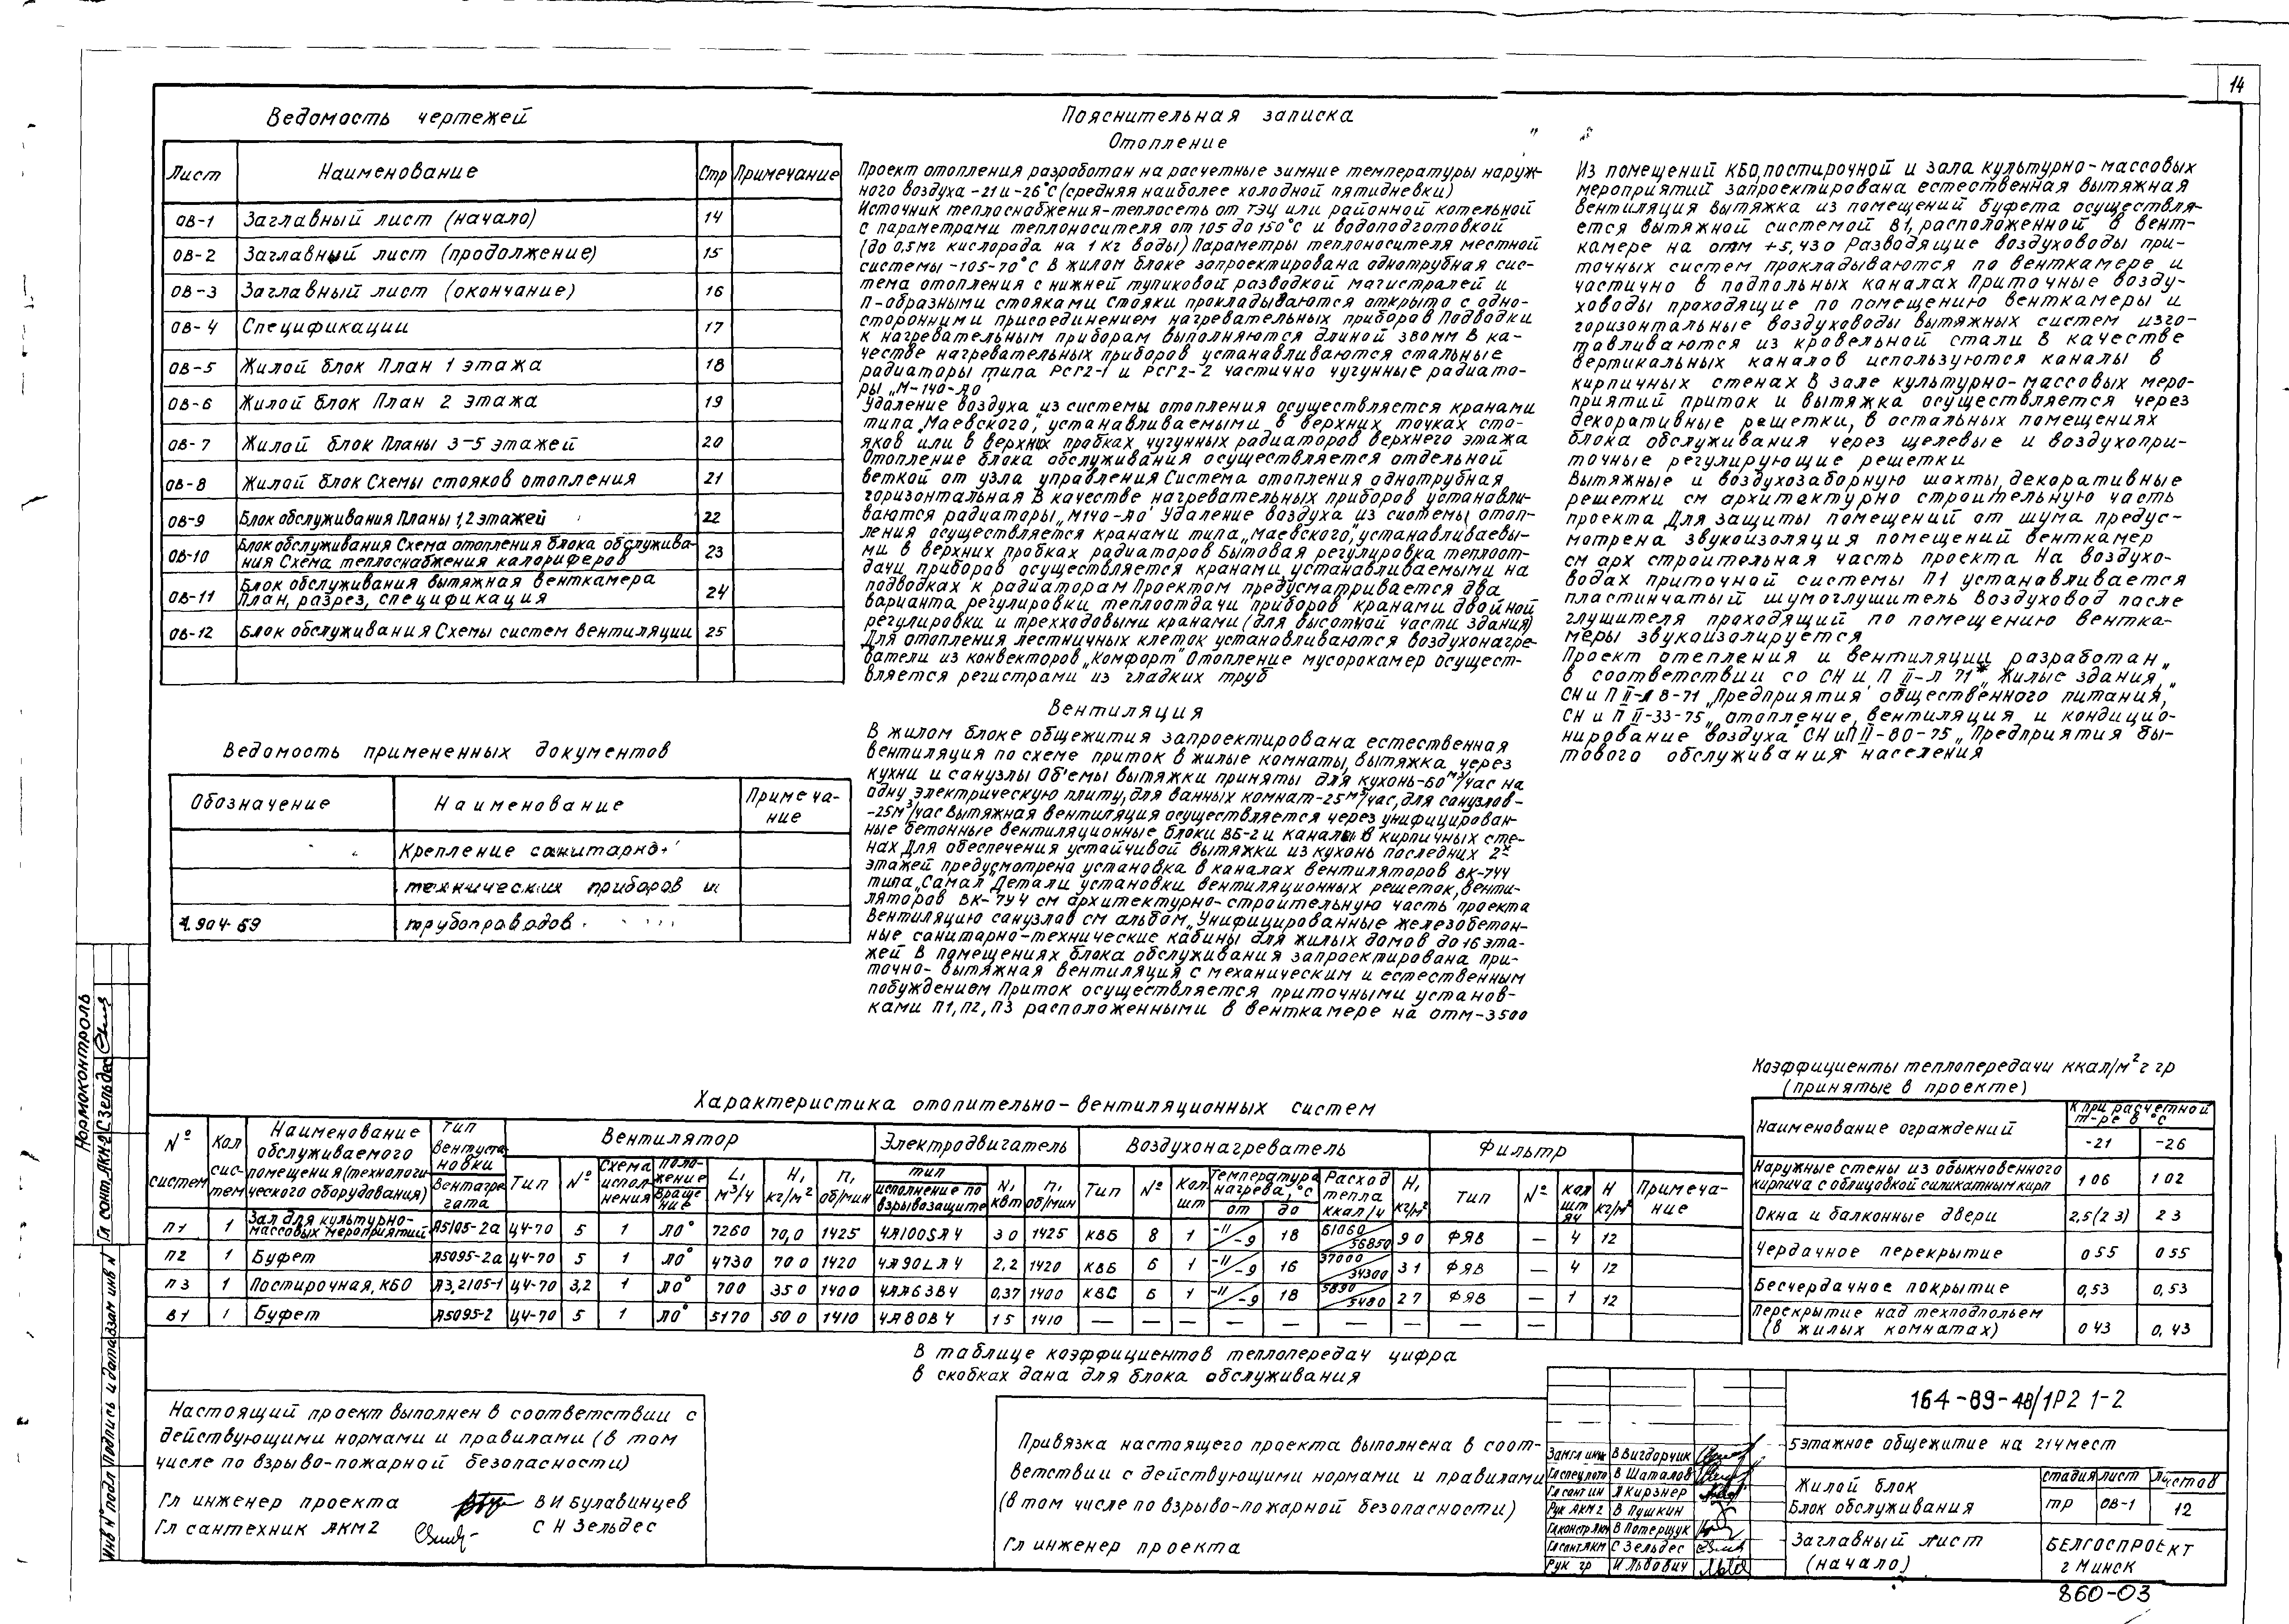 14
Ведомость чертежей
Лист Наименование Стр Примечание
ОВ-1 Заглавный лист (начало) 14
ОВ-2 Заглавный лист (продолжение) 15
ОВ-3 Заглавный лист (окончание) 16
ОВ-4 Спецификации 17
ОВ-5 Жилой блок План 1 этажа 18
ОВ-6 Жилой блок План 2 этажа 19
ОВ-7 Жилой блок Планы 3-5 этажей 20
ОВ-8 Жилой блок Схемы стояков отопления 21
ОВ-9 Блок обслуживания Планы 1,2 этажей 22
ОВ-10 Блок обслуживания Схема отопления блока обслужива-
ния Схема теплоснабжения калориферов 23
ОВ-11 Блок обслуживания вытяжная венткамера
план, разрез, спецификация 24
ОВ-12 Блок обслуживания Схемы систем вентиляции 25
Ведомость примененных документов
Обозначение Наименование Примеча-
ние
Крепление санитарно-
технических приборов и
4.904-69 трубопроводов
Пояснительная записка
Отопление
Проект отопления разработан на расчетные зимние температуры наруж-
ного воздуха -21 и -26°С (средняя наиболее холодной пятидневки)
Источник теплоснабжения-теплосеть от ТЭЦ или районной котельной
с параметрами теплоносителя от 105 до 150°с и водоподготовкой
(до 0,5мг кислорода на 1 кг воды) Параметры теплоносителя местной
системы -105-70°с В жилом блоке запроектирована однотрубная сис-
тема отопления с нижней тупиковой разводкой магистралей и
П-образными стояками Стояки прокладываются открыто с одно-
сторонними присоединением нагревательных приборов Подводки
к нагревательным приборам выполняются длиной 380мм В ка-
честве нагревательных приборов устанавливаются стальные
радиаторы типа РСГ2-1 и РСГ2-2 частично чугунные радиато-
ры „М-140-АО"
Удаление воздуха из системы отопления осуществляется кранами
типа „Маевского", устанавливаемыми в верхних точках сто-
яков или в верхних пробках чугунных радиаторов верхнего этажа
Отопление блока обслуживания осуществляется отдельной
веткой от узла управления Система отопления однотрубная
горизонтальная В качестве нагревательных приборов устанавли-
ваются радиаторы „М140-АО" Удаление воздуха из системы отоп-
ления осуществляется кранами типа „Маевского", устанавливаемы-
ми в верхних пробках радиаторов Бытовая регулировка теплоот-
дачи приборов осуществляется кранами устанавливаемыми на
подводках к радиаторам Проектом предусматривается два
варианта регулировки теплоотдачи приборов кранами двойной
регулировки и трехходовыми кранами (для высотной части здания)
Для отопления лестничных клеток устанавливаются воздухонагре-
ватели из конвекторов „Комфорт" Отопление мусорокамер осущест-
вляется регистрами из гладких труб
Вентиляция
В жилом блоке общежития запроектирована естественная
вентиляция по схеме приток в жилые комнаты, вытяжка через
кухни и санузлы Объемы вытяжки приняты для кухонь-60 м³/час на
одну электрическую плиту, для ванных комнат-25м³/час, для санузлов-
-25м³/час Вытяжная вентиляция осуществляется через унифицирован-
ные бетонные вентиляционные блоки ВБ-2 и каналы в кирпичных сте-
нах Для обеспечения устойчивой вытяжки из кухонь последних 2х
этажей предусмотрена установка в каналах вентиляторов ВК-7У4
типа „Самал Детали установки вентиляционных решеток, венти-
ляторов ВК-7У4 см архитектурно-строительную часть проекта
Вентиляцию санузлов см альбом „Унифицированные железобетон-
ные санитарно-технические кабины для жилых домов до 16 эта-
жей В помещениях блока обслуживания запроектирована при-
точно-вытяжная вентиляция с механическим и естественным
побуждением Приток осуществляется приточными установ-
ками П1, П2, П3 расположенными в венткамере на отм-3500
Из помещений КБО, постирочной и зала культурно-массовых
мероприятий запроектирована естественная вытяжная
вентиляция Вытяжка из помещений буфета осуществля-
ется вытяжной системой В1, расположенной в вент-
камере на отм +5,430 Разводящие воздуховоды при-
точных систем прокладываются по венткамере и
частично в подпольных каналах Приточные возду-
ховоды проходящие по помещению венткамеры и
горизонтальные воздуховоды вытяжных систем изго-
тавливаются из кровельной стали В качестве
вертикальных каналов используются каналы в
кирпичных стенах В зале культурно-массовых меро-
приятий приток и вытяжка осуществляется через
декоративные решетки, в остальных помещениях
блока обслуживания через щелевые и воздухопри-
точные регулирующие решетки
Вытяжные и воздухозаборную шахты, декоративные
решетки см архитектурно строительную часть
проекта Для защиты помещений от шума предус-
мотрена звукоизоляция помещений венткамер
см арх строительная часть проекта На воздухо-
водах приточной системы П1 устанавливается
пластинчатый шумоглушитель Воздуховод после
глушителя проходящий по помещению вентка-
меры звукоизолируется
Проект отопления и вентиляции разработан
в соответствии со СН и П II-Л 71* „Жилые здания,"
СН и П II-Л 8-71 „Предприятия общественного питания,"
СН и П II-33-75 „отопление, вентиляция и кондицио-
нирование воздуха" СНиП II-80-75 „Предприятия бы-
тового обслуживания населения
Характеристика отопительно-вентиляционных систем
№ систем Кол сис-тем Наименование обслуживаемого помещения (технологического оборудования) Тип вентустановки вентагрегата Вентилятор Электродвигатель Воздухонагреватель Фильтр Примеча-ние
Тип № Схема исполнения Положение вращение L, м³/ч Н, кг/м² п, об/мин тип исполнение по взрывозащите N, квт п, об/мин Тип № Кол шт Температура нагрева, °с от до Расход тепла ккал/ч Н, кг/м² Тип № кол шт яч Н кг/м²
П1 1 Зал для культурно-массовых мероприятий А5105-2а Ц4-70 5 1 Л0° 7260 70,0 1425 4А100SА4 3 0 1425 КВБ 8 1 -11/-9 18 61060/56850 9 0 ФЯВ — 4 12
П2 1 Буфет А5095-2а Ц4-70 5 1 Л0° 4730 70 0 1420 4А90LА4 2,2 1420 КВБ 6 1 -11/-9 16 37000/34300 3 1 ФЯВ — 4 12
П3 1 Постирочная, КБО А3,2105-1 Ц4-70 3,2 1 Л0° 700 35 0 1400 4АА63В4 0,37 1400 КВС 6 1 -11/-9 18 5890/5480 2 7 ФЯВ — 1 12
В1 1 Буфет А5095-2 Ц4-70 5 1 Л0° 5170 50 0 1410 4А80В4 1 5 1410 — — — — — — — — — —
Коэффициенты теплопередачи ккал/м² г гр
(принятые в проекте)
Наименование ограждений К при расчетной т-ре в °С
-21 -26
Наружные стены из обыкновенного
кирпича с облицовкой силикатным кирп 1 06 1 02
Окна и балконные двери 2,5 (2 3) 2 3
Чердачное перекрытие 0 55 0 55
Бесчердачное покрытие 0,53 0,53
Перекрытие над техподпольем
(в жилых комнатах) 0 43 0,43
В таблице коэффициентов теплопередач цифра
в скобках дана для блока обслуживания
Настоящий проект выполнен в соответствии с
действующими нормами и правилами (в том
числе по взрыво-пожарной безопасности)
Гл инженер проекта В И Булавинцев
Гл сантехник АКМ2 С Н Зельдес
Привязка настоящего проекта выполнена в соот-
ветствии с действующими нормами и правилами
(в том числе по взрыво-пожарной безопасности)
Гл инженер проекта
Зам гл инж В Вигдорчик
Гл спец пото В Шаталов
Гл сант ин Л Кирзнер
Рук АКМ 2 В Пушкин
Гл констр АКМ В Потерщук
Гл сант АКМ С Зельдес
Рук гр И Львович
164-89-48/1Р2 1-2
5этажное общежитие на 214 мест
Жилой блок
Блок обслуживания
стадия лист листов
тр ОВ-1 12
Заглавный лист
(начало)
БЕЛГОСПРОЕКТ
г Минск
860-03
Нормоконтроль
Гл сант АКМ-2 С Зельдес
Инв № подл Подпись и дата Взам инв №